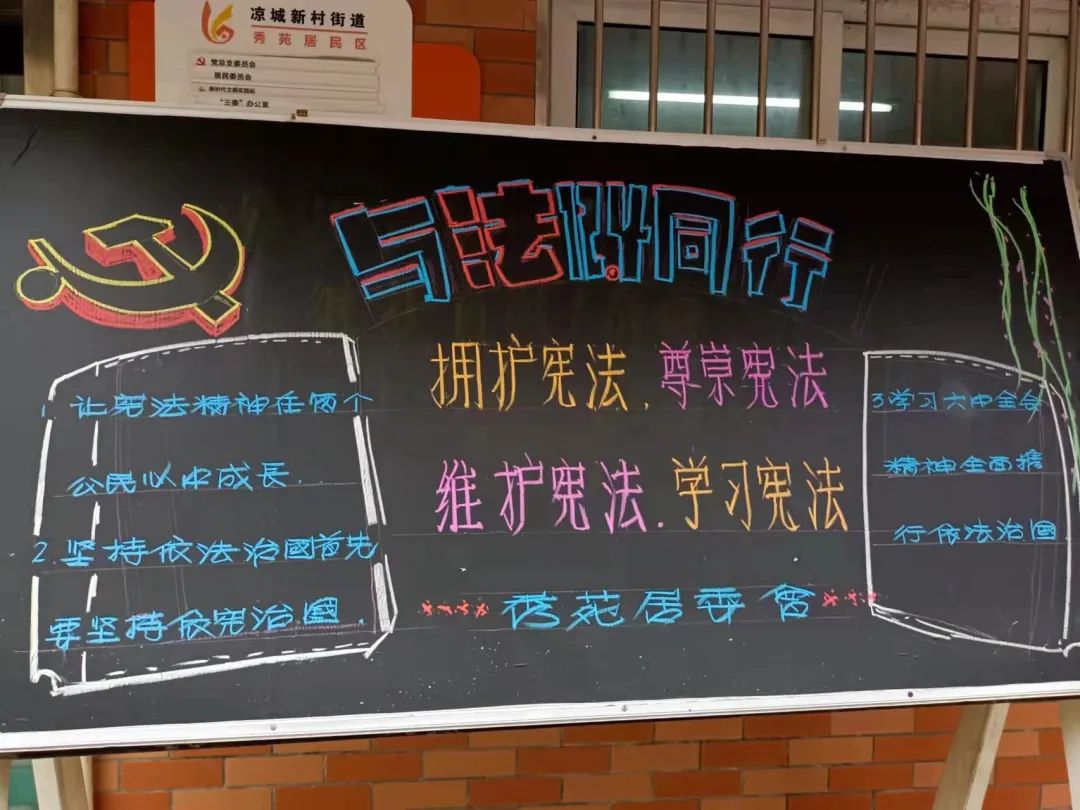 凉城新村街道
秀苑居民区
党总支委员会
居民委员会
新时代文明实践站
“三委”办公室
与法同行
拥护宪法.尊崇宪法
维护宪法.学习宪法
秀苑居委會
1.让宪法精神在每个
公民心中成長.
2.坚持依法治國首先
要坚持依宪治國.
3学习六中全会
精神全面推
行依法治国